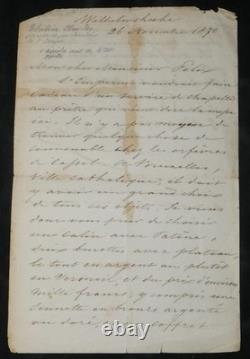 Wilhelmshoehe
26 Novembre 1870
Mon cher Monsieur Félix
L'Empereur voudrait faire
cadeau d'un service de chapelle
au prêtre qui vient dire la
messe. Il n'y a pas moyen de
trouver quelque chose de
convenable chez les orfèvres
de Bruxelles,
ville catholique, et doit
y avoir un grand choix
de tous ces objets. Je viens
donc vous prier de choisir
un calice avec patène,
deux burettes avec plateau
le tout en argent ou plutôt
en Vermeil, et du prix d'environ
mille francs, y compris une
sonnette en bronze argenté
ou doré et un coffret